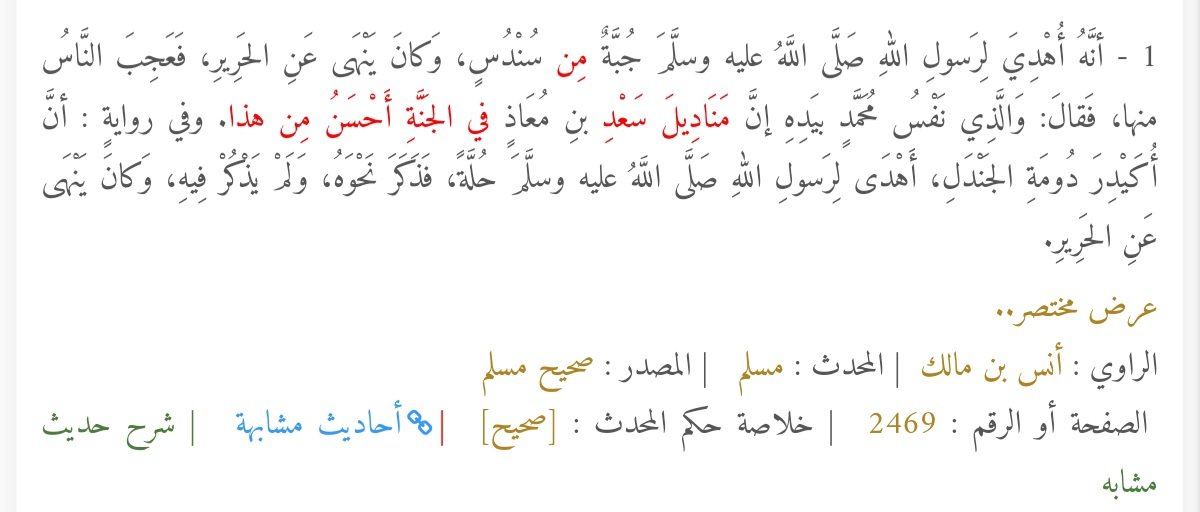 1 - أنَّهُ أُهْدِيَ لِرَسولِ اللهِ صَلَّى اللَّهُ عليه وسلَّمَ جُبَّةٌ مِن سُنْدُسٍ، وَكانَ يَنْهَى عَنِ الحَرِيرِ، فَعَجِبَ النَّاسُ
منها، فَقالَ: وَالَّذِي نَفْسُ مُحَمَّدٍ بيَدِهِ إنَّ مَنَادِيلَ سَعْدِ بنِ مُعَاذٍ في الجَنَّةِ أَحْسَنُ مِن هذا. وفي روايةٍ : أنَّ
أُكَيْدِرَ دُومَةِ الجَنْدَلِ، أَهْدَى لِرَسولِ اللهِ صَلَّى اللَّهُ عليه وسلَّمَ حُلَّةً، فَذَكَرَ نَحْوَهُ، وَلَمْ يَذْكُرْ فِيهِ، وَكانَ يَنْهَى
عَنِ الحَرِيرِ.
عرض مختصر..
الراوي : أنس بن مالك | المحدث : مسلم | المصدر : صحيح مسلم
الصفحة أو الرقم : 2469 | خلاصة حكم المحدث : [صحيح] | أحاديث مشابهة | شرح حديث
مشابه